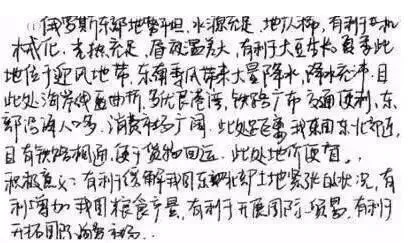 (1)俄罗斯东部地势平坦,水源充足,地广人稀,有利于农机
械化,光热充足,昼夜温差大,有利于大豆生长。夏季此
地位于迎风地带,东南季风带来大量降水,降水充沛。且
此处海岸线曲折,多优良港湾,铁路广布,交通便利,东
部沿海人口多,消费市场广阔。此处距离我国东北部近,
且有铁路相通,便于货物回运。此处地价便宜。
积极意义:有利于缓解我国东北部土地紧张的状况,有
利增加我国粮食产量,有利于开展国际贸易,有利于
开拓国际海外市场。